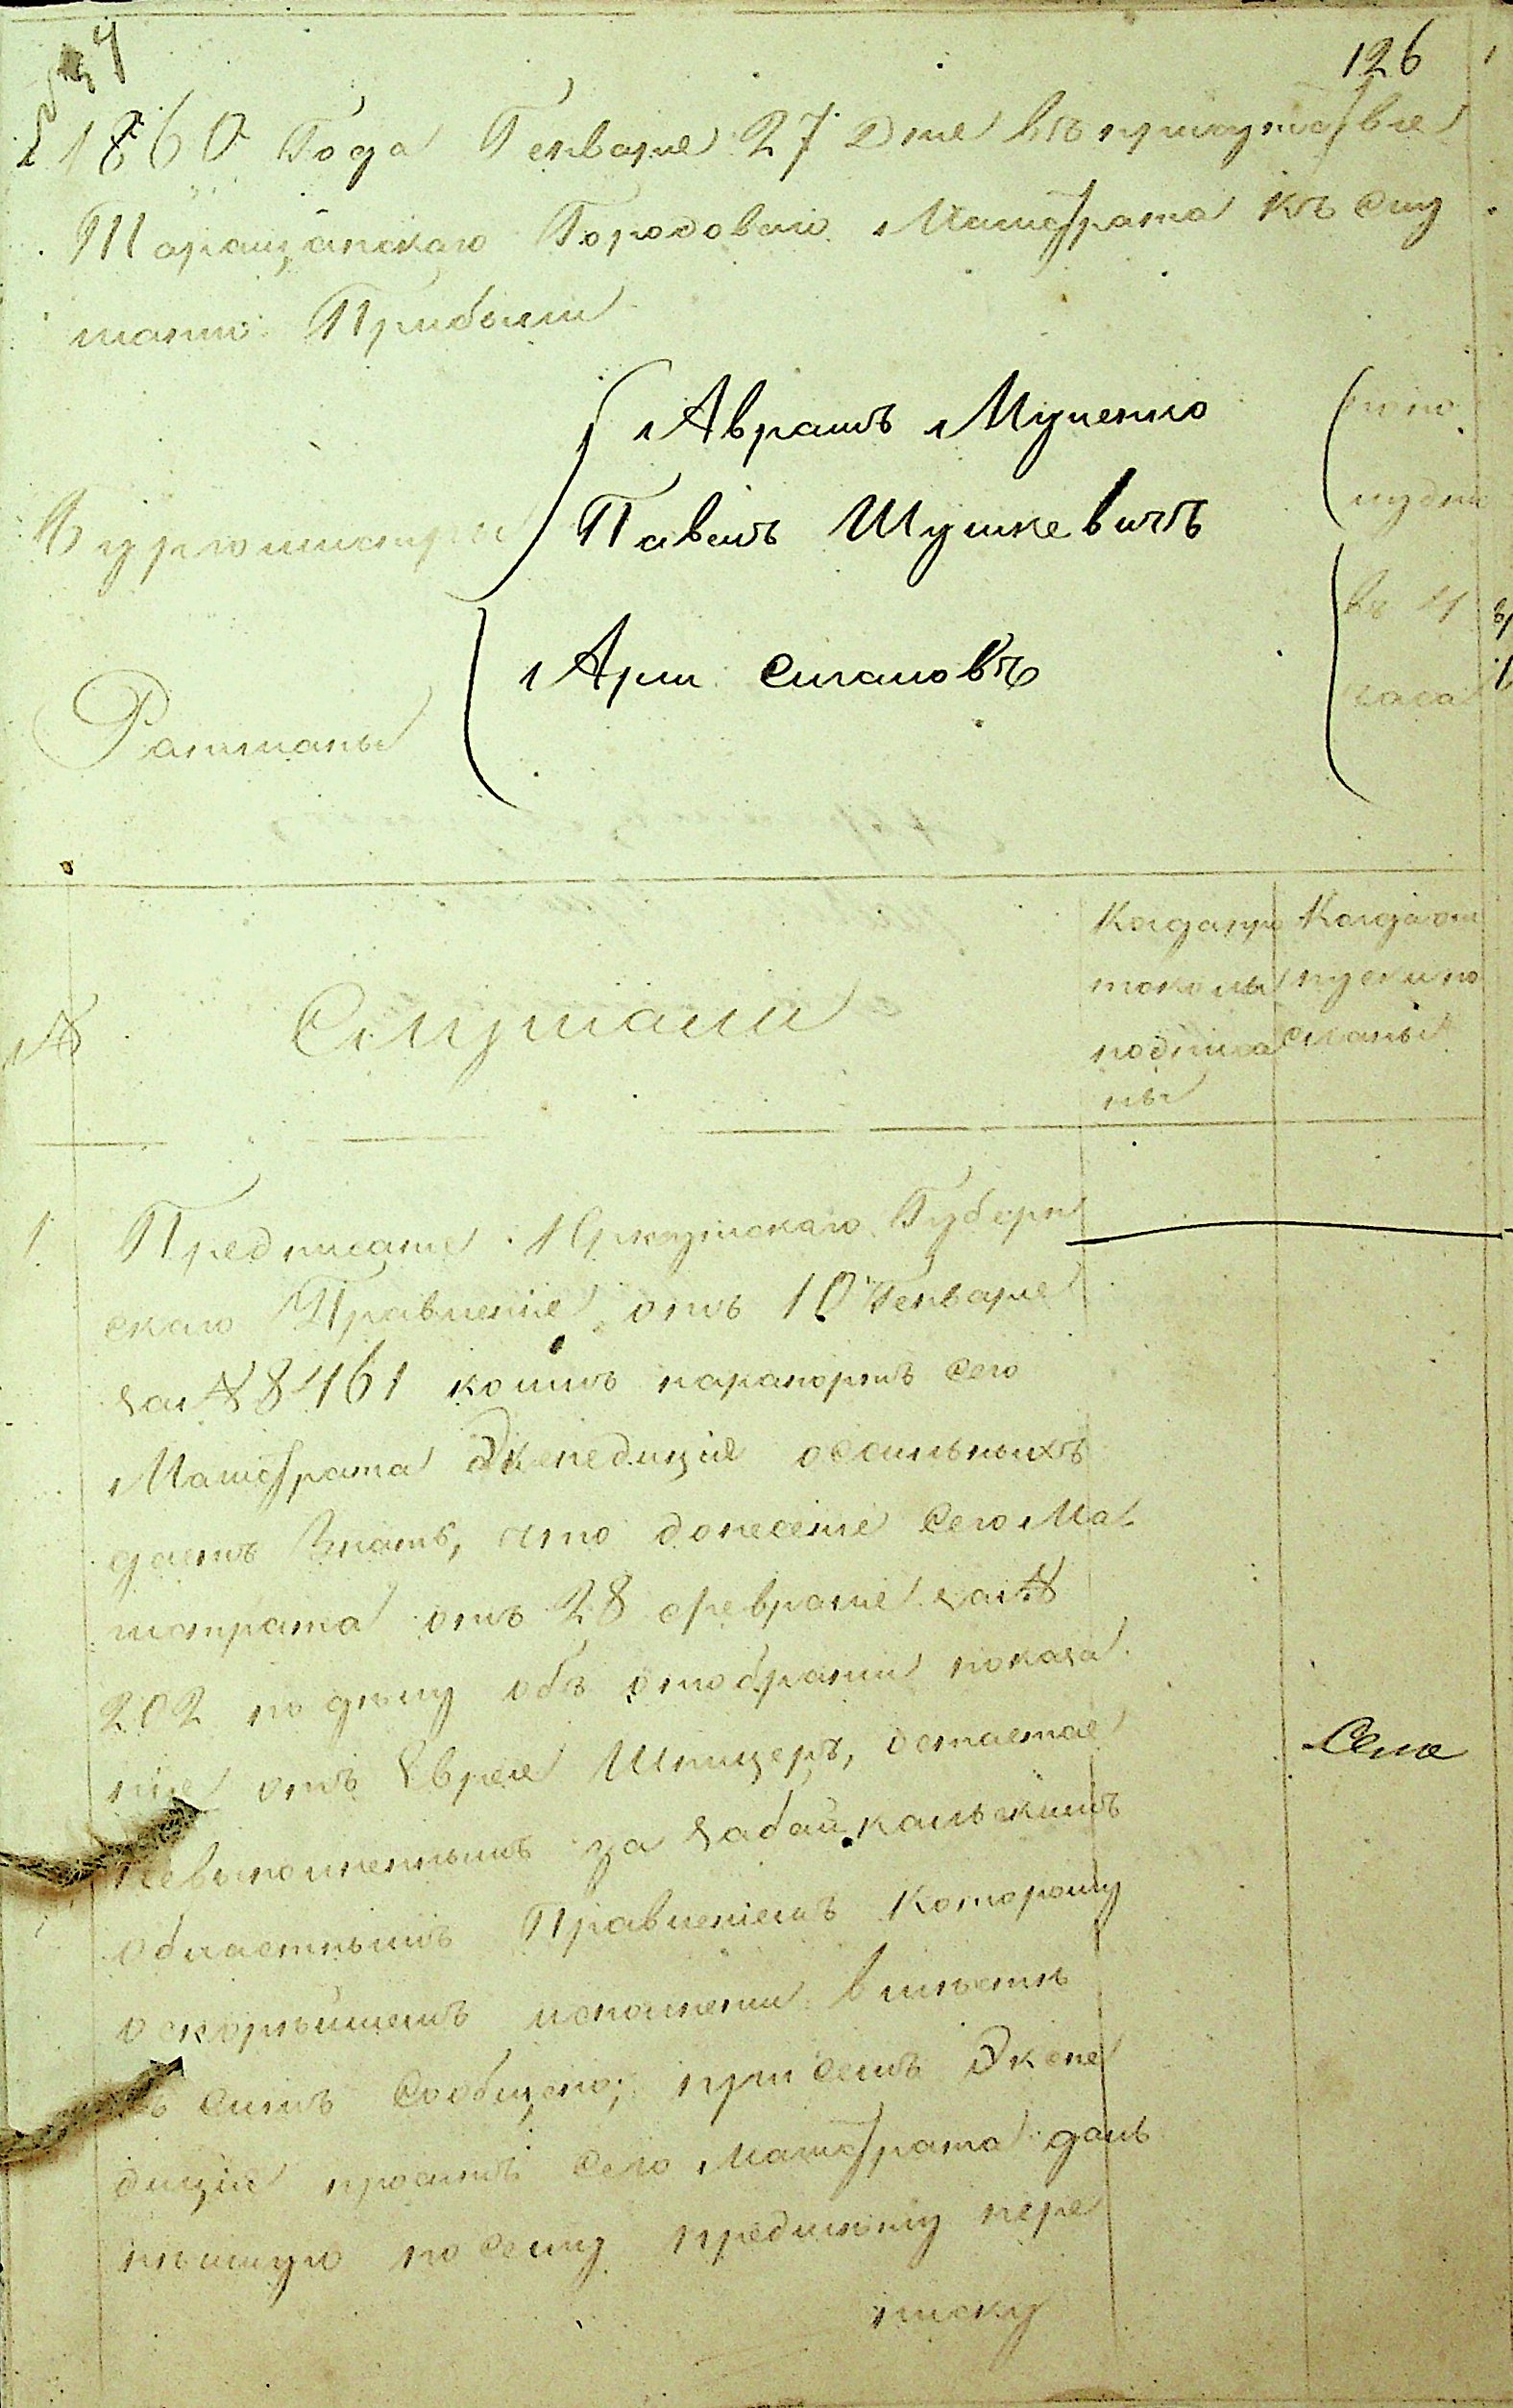 126
1860 Года Генваря 27 Дня въ присутствіе
Таращанскаго Городоваго Магистрата къ слу
шанію Прибыли
Аврамъ Муценко
Бургомистры Павелъ Шушкевичъ
Ратманы
по по
лудни
въ 4
часа
№ Слушали
Когда про
токолы
подписа
ны
Когда от
пуски по
сланы
1 Предписаніе Иркутскаго Губерн
скаго Правленія отъ 10 Генваря
за № 8461 коимъ на рапортъ сего
Магистрата Экспедиція о ссыльныхъ
даетъ знать, что донесеніе сего Ма
гистрата отъ 28 февраля за №
202 по делу объ отобраніи показа
нія отъ Еврея Шпицеръ, остается
невыполненнымъ за Забайкальскимъ
областнымъ Правленіемъ Которому
о скорейшемъ исполненіи вместе
съ симъ сообщено; при семъ Экспе
диція проситъ сего Магистрата даль
нейшую по сему предмету пере
писку